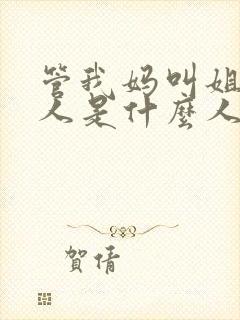 管我妈叫姐
人是什麼人
賀倩